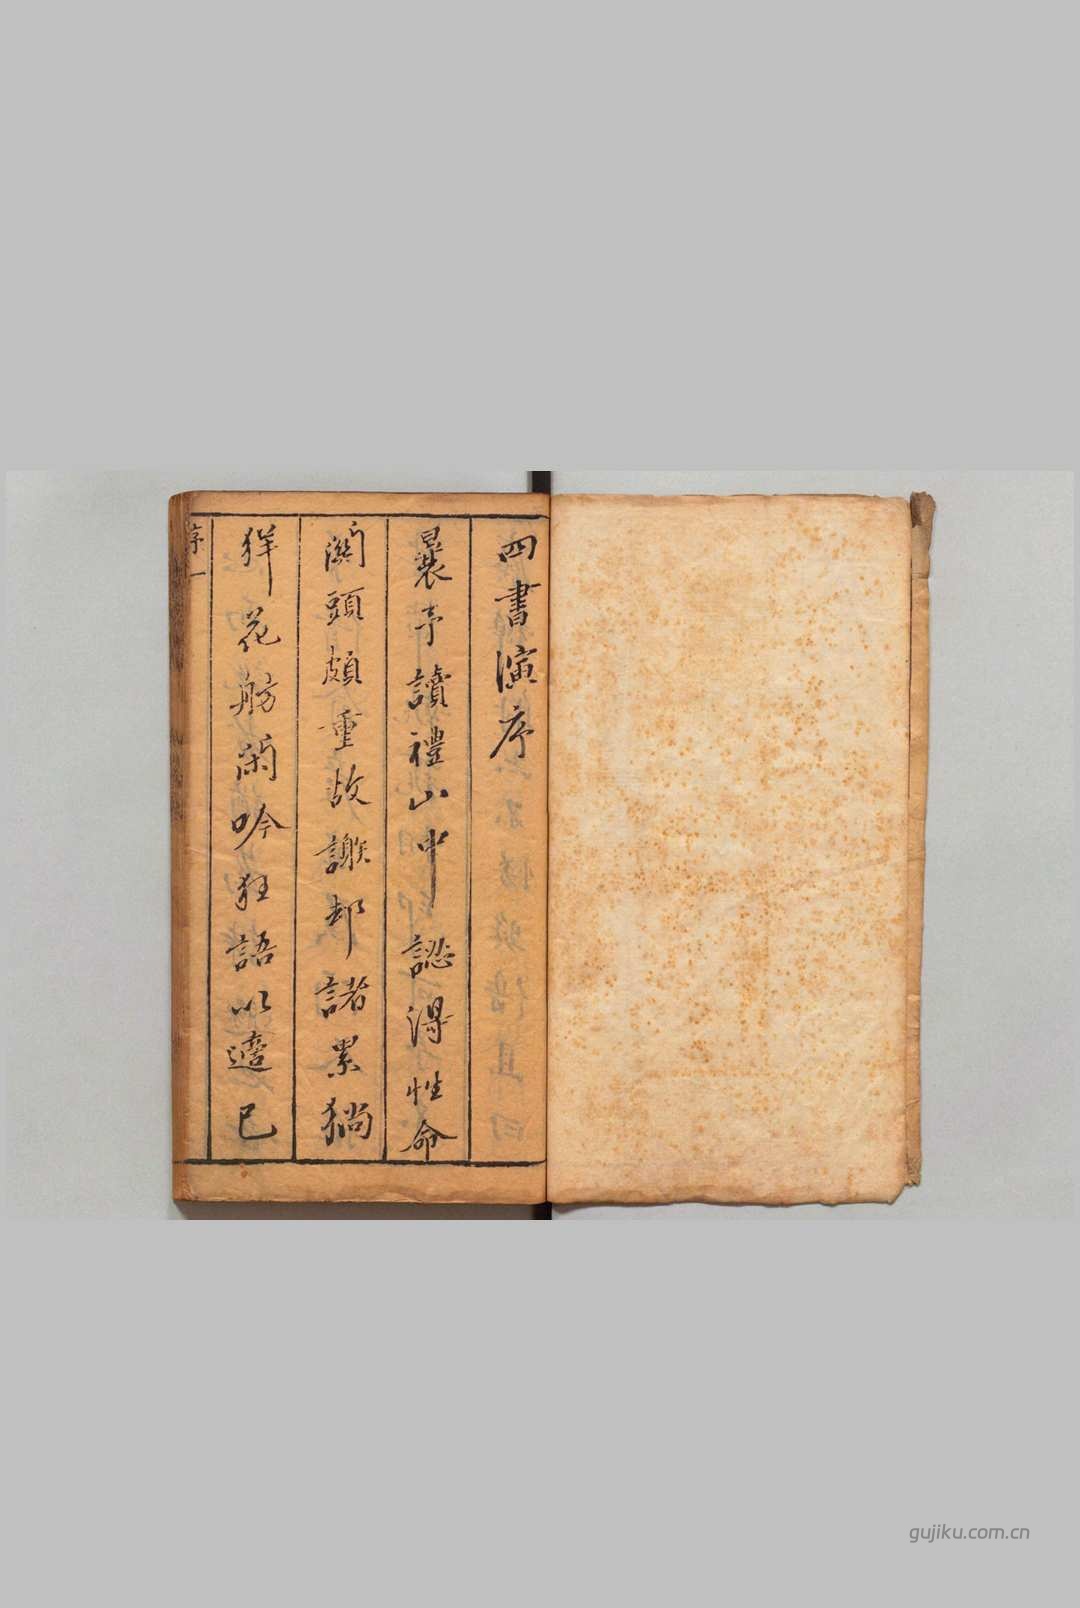 四書演序
曩予讀禮山中認得性命
關頭頗重故謝却諸累猖
狂花舫閑吟狂語以適己
序一
gujiku.com.cn